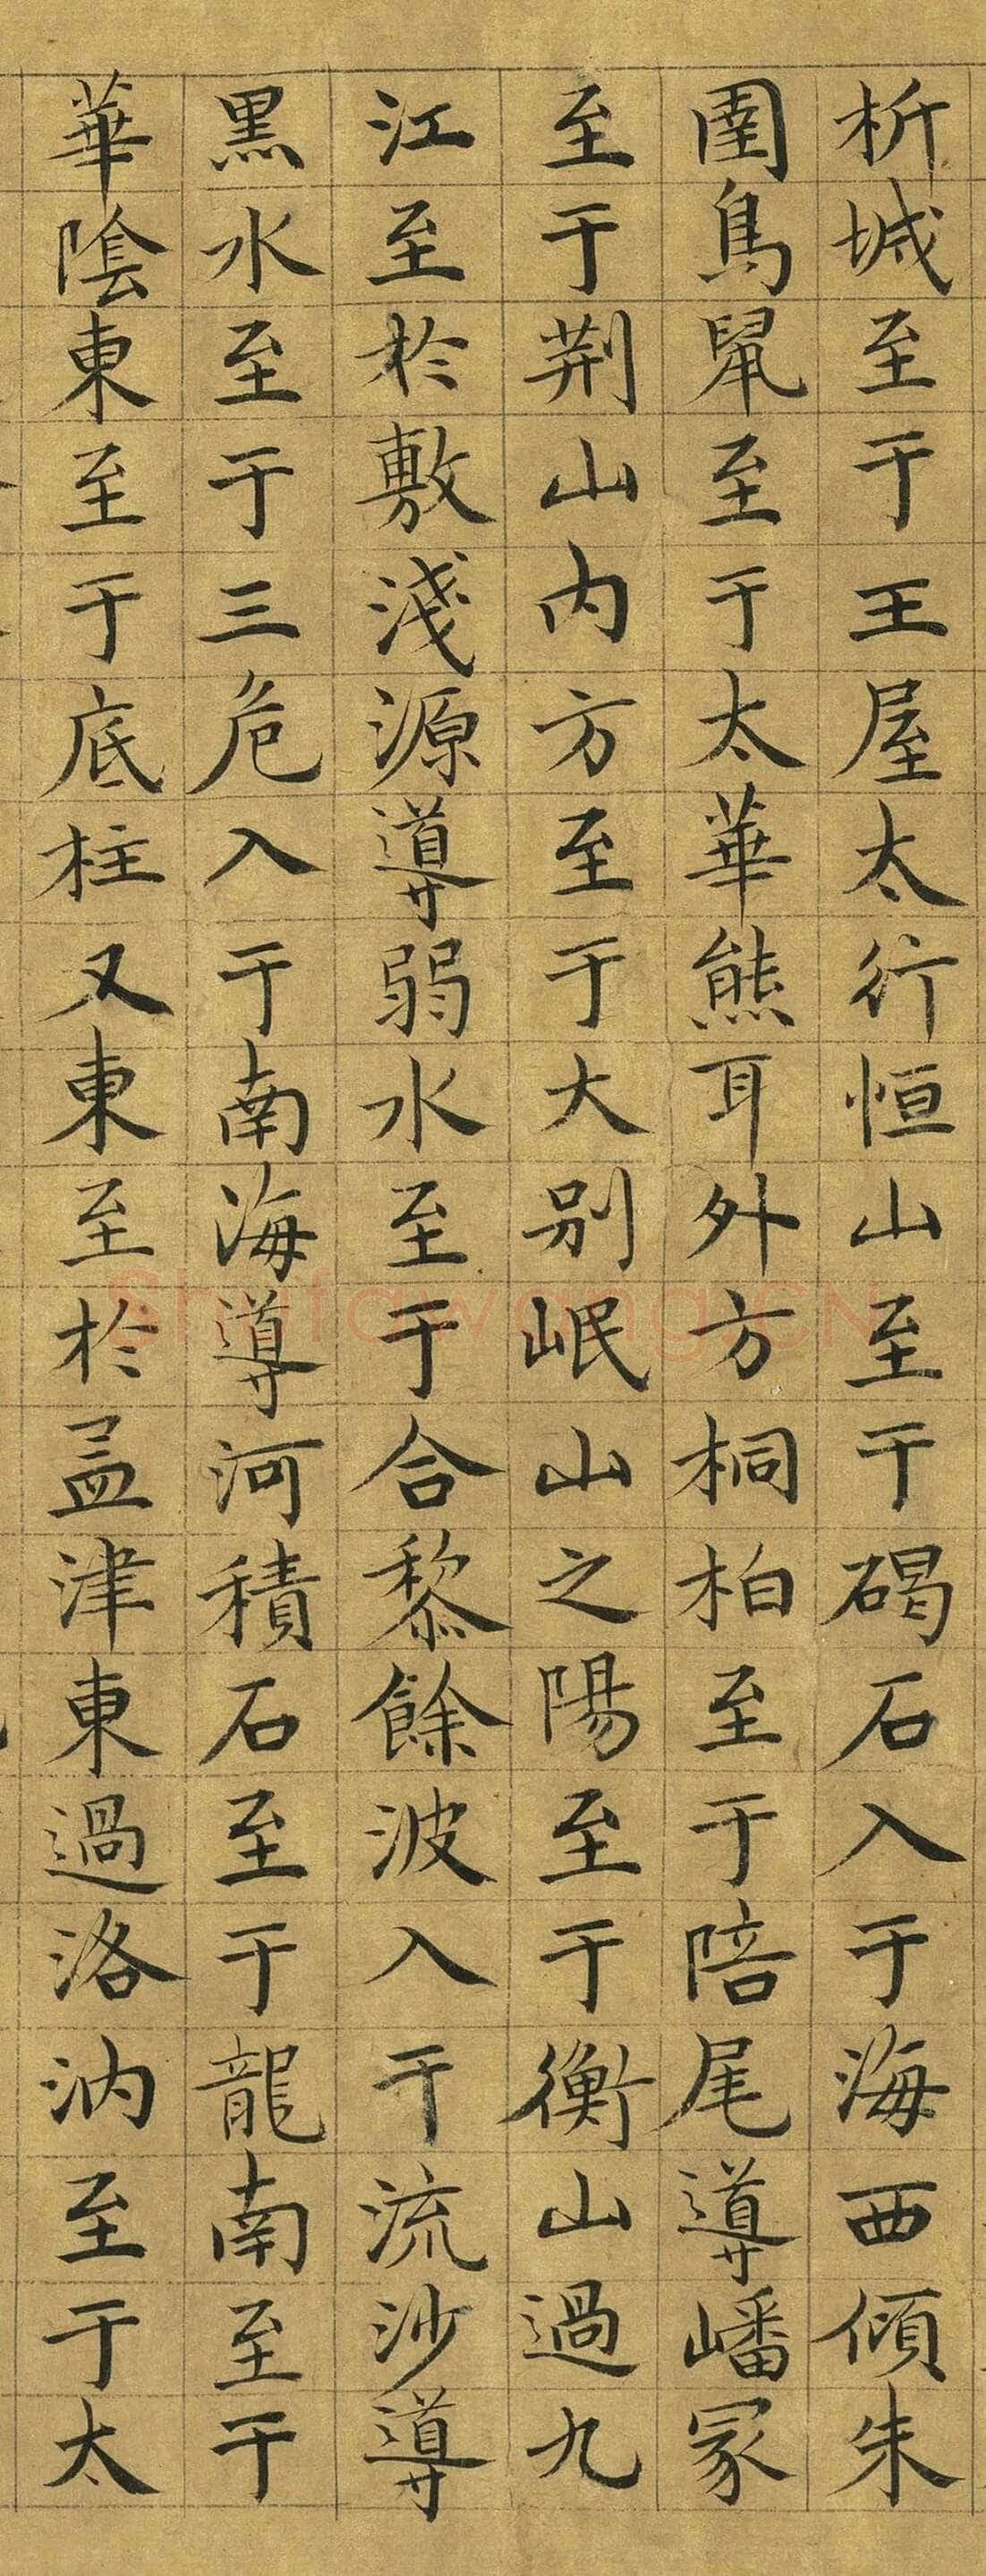 析城至于王屋太行恒山至于碣石入于海西傾朱
圉鳥鼠至于太華熊耳外方桐柏至于陪尾導嶓冢
至于荆山内方至于大别岷山之陽至于衡山過九
江至於敷淺源導弱水至于合黎餘波入于流沙導
黑水至于三危入于南海導河積石至于龍南至于
華陰東至于底柱又東至於孟津東過洛汭至于太
shufawang.CN